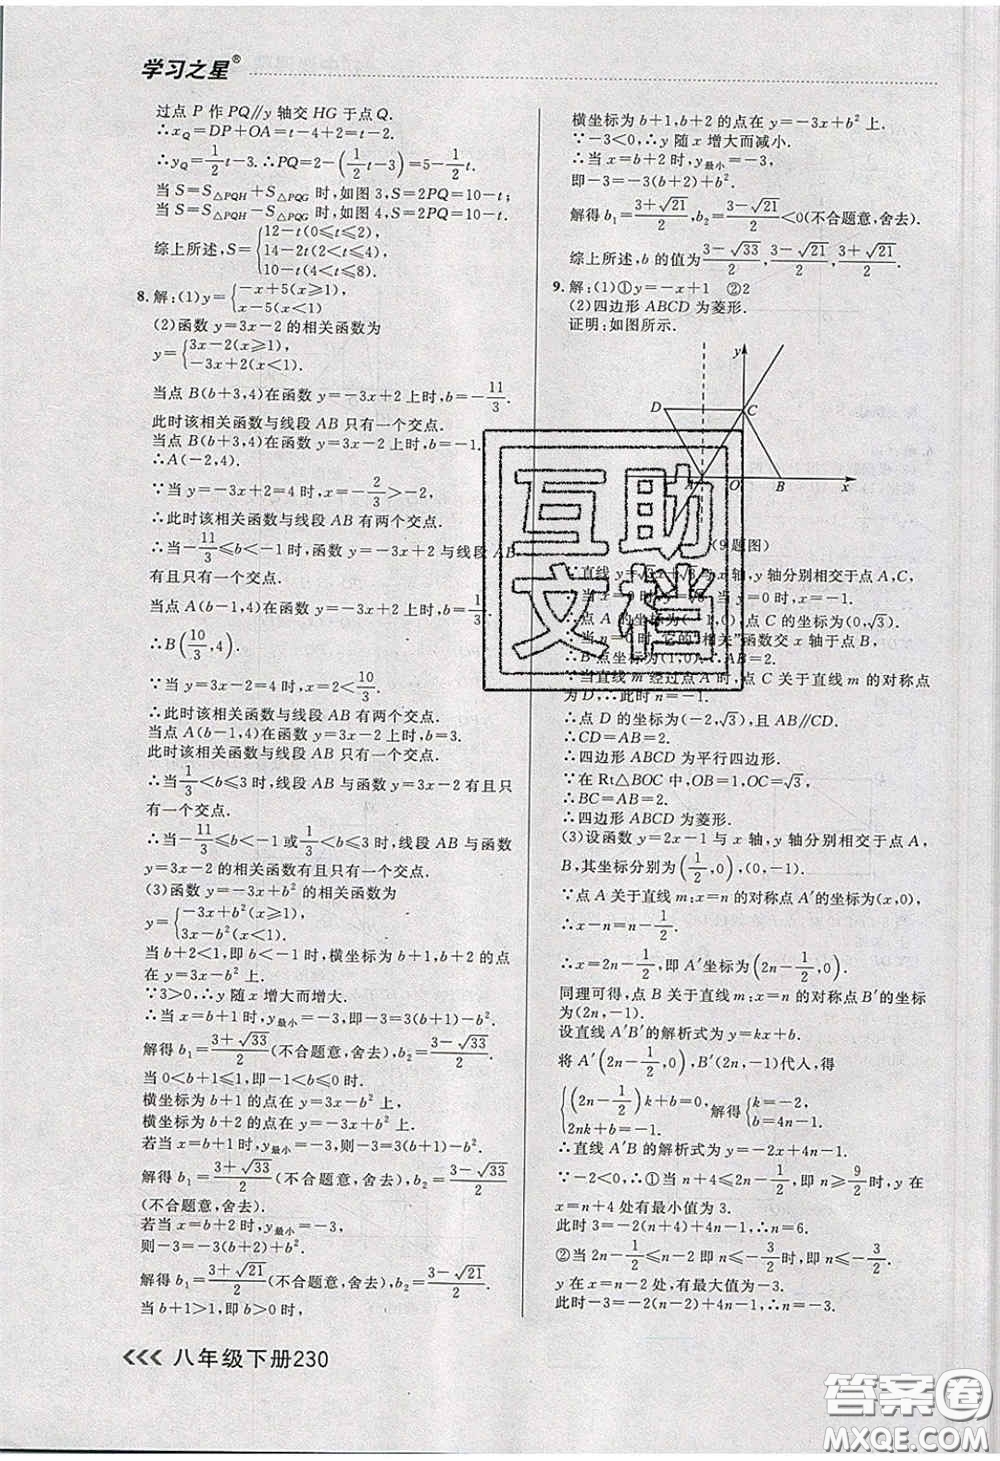 学习之星®
过点 P 作 PQ∥y 轴交 HG 于点 Q.
∴x_Q=DP+OA=t-4+2=t-2.
∴y_Q=1/2t-3. ∴PQ=2-(1/2t-3)=5-1/2t.
当 S=S△PQH+S△PQG 时,如图 3,S=2PQ=10-t;
当 S=S△PQH-S△PQG 时,如图 4,S=2PQ=10-t.
综上所述,S={12-t(0⩽t⩽2),
14-2t(2<t⩽4),
10-t(4<t⩽8).
8.解:(1)y={-x+5(x⩾1),
x-5(x<1)
(2)函数 y=3x-2 的相关函数为
y={3x-2(x⩾1),
-3x+2(x<1).
当点 B(b+3,4)在函数 y=-3x+2 上时,b=-11/3.
此时该相关函数与线段 AB 只有一个交点.
当点 B(b+3,4)在函数 y=3x-2 上时,b=-1.
∴A(-2,4).
∵当 y=-3x+2=4 时,x=-2/3>-2.
∴此时该相关函数与线段 AB 有两个交点.
∴当-11/3⩽b<-1 时,函数 y=-3x+2 与线段 AB
有且只有一个交点.
当点 A(b-1,4)在函数 y=-3x+2 上时,b=1/3.
∴B(10/3,4).
∵当 y=3x-2=4 时,x=2<10/3.
∴此时该相关函数与线段 AB 有两个交点.
当点 A(b-1,4)在函数 y=3x-2 上时,b=3.
此时该相关函数与线段 AB 只有一个交点.
∴当1/3<b⩽3 时,线段 AB 与函数 y=3x-2 有且只有
一个交点.
∴当-11/3⩽b<-1 或1/3<b⩽3 时,线段 AB 与函数
y=3x-2 的相关函数有且只有一个交点.
(3)函数 y=-3x+b² 的相关函数为
y={-3x+b²(x⩾1),
3x-b²(x<1).
当 b+2<1,即 b<-1 时,横坐标为 b+1,b+2 的点
在 y=3x-b² 上.
∵3>0,∴y 随 x 增大而增大.
∴当 x=b+1 时,y最小=-3,即-3=3(b+1)-b².
解得 b₁=(3+√33)/2(不合题意,舍去),b₂=(3-√33)/2.
当 0<b+1⩽1,即-1<b⩽0 时,
横坐标为 b+1 的点在 y=3x-b² 上,
横坐标为 b+2 的点在 y=-3x+b² 上.
若当 x=b+1 时,y最小=-3,则-3=3(b+1)-b².
解得 b₁=(3+√33)/2(不合题意,舍去),b₂=(3-√33)/2
(不合题意,舍去).
若当 x=b+2 时,y最小=-3,
则-3=-3(b+2)+b².
解得 b₁=(3+√21)/2(不合题意,舍去),b₂=(3-√21)/2.
当 b+1>1,即 b>0 时,
横坐标为 b+1,b+2 的点在 y=-3x+b² 上.
∵-3<0,∴y 随 x 增大而减小.
∴当 x=b+2 时,y最小=-3,
即-3=-3(b+2)+b².
解得 b₁=(3+√21)/2,b₂=(3-√21)/2<0(不合题意,舍去).
综上所述,b 的值为(3-√33)/2,(3-√21)/2,(3+√21)/2.
9.解:(1)①y=-x+1 ②2
(2)四边形 ABCD 为菱形.
证明:如图所示.
y
D
C
A
O
B
x
(9题图)
∵直线 y=√3x+√3 与 x 轴,y 轴分别相交于点 A,C,
点 A 的坐标为(-1,0),点 C 的坐标为(0,√3).
∵当 n=0 时,它的“相关”函数交 x 轴于点 B,
∴B 点坐标为(1,0). ∴AB=2.
∵当直线 m 经过点 A 时,点 C 关于直线 m 的对称点
为 D,∴此时 n=-1.
∴点 D 的坐标为(-2,√3),且 AB∥CD.
∴CD=AB=2.
∴四边形 ABCD 为平行四边形.
∵在 Rt△BOC 中,OB=1,OC=√3,
∴BC=AB=2.
∴四边形 ABCD 为菱形.
(3)设函数 y=2x-1 与 x 轴,y 轴分别相交于点 A,
B,其坐标分别为(1/2,0),(0,-1).
∵点 A 关于直线 m:x=n 的对称点 A′的坐标为(x,0),
∴x-n=n-1/2.
∴x=2n-1/2,即 A′坐标为(2n-1/2,0).
同理可得,点 B 关于直线 m:x=n 的对称点 B′的坐标
为(2n,-1).
设直线 A′B′的解析式为 y=kx+b.
将 A′(2n-1/2,0),B′(2n,-1)代人,得
{(2n-1/2)k+b=0,
2nk+b=-1.
解得{k=-2,
b=4n-1.
∴直线 A′B′的解析式为 y=-2x+4n-1.
∵-2<0,∴①当 n+4⩽2n-1/2,即 n⩾9/2时,y 在
x=n+4 处有最小值为 3.
此时 3=-2(n+4)+4n-1,∴n=6.
②当 2n-1/2⩽n-2 即 n⩽-3/2时,即 n⩽-3/2时,
y 在 x=n-2 处,有最大值为-3.
此时-3=-2(n-2)+4n-1,∴n=-3.
八年级下册230
互助
文档
答案圈
MXQE.COM